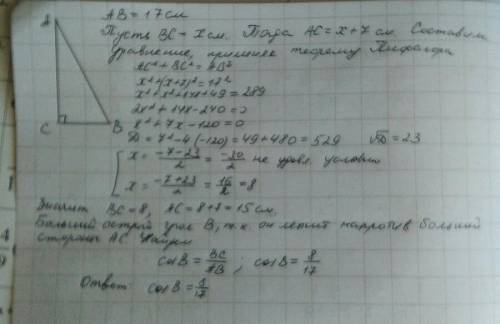 A
C
B
AB = 17 см
Пусть BC - x см. Тогда AC = x + 7 см. Составим
уравнение, применяя теорему Пифагора
AC² + BC² = AB²
x² + (x+7)² = 17²
x² + x² + 14x + 49 = 289
2x² + 14x - 240 = 0
x² + 7x - 120 = 0
D = 7² - 4·(-120) = 49 + 480 = 529 √D = 23
x = (-7-23)/2 = -30/2 не удовл. условию
x = (-7+23)/2 = 16/2 = 8
Значит BC = 8, AC = 8+7 = 15 см.
Больший острый угол B, т.к. он лежит напротив большей
стороны AC. Найдем
cos B = BC/AB ; cos B = 8/17
Ответ: cos B = 8/17